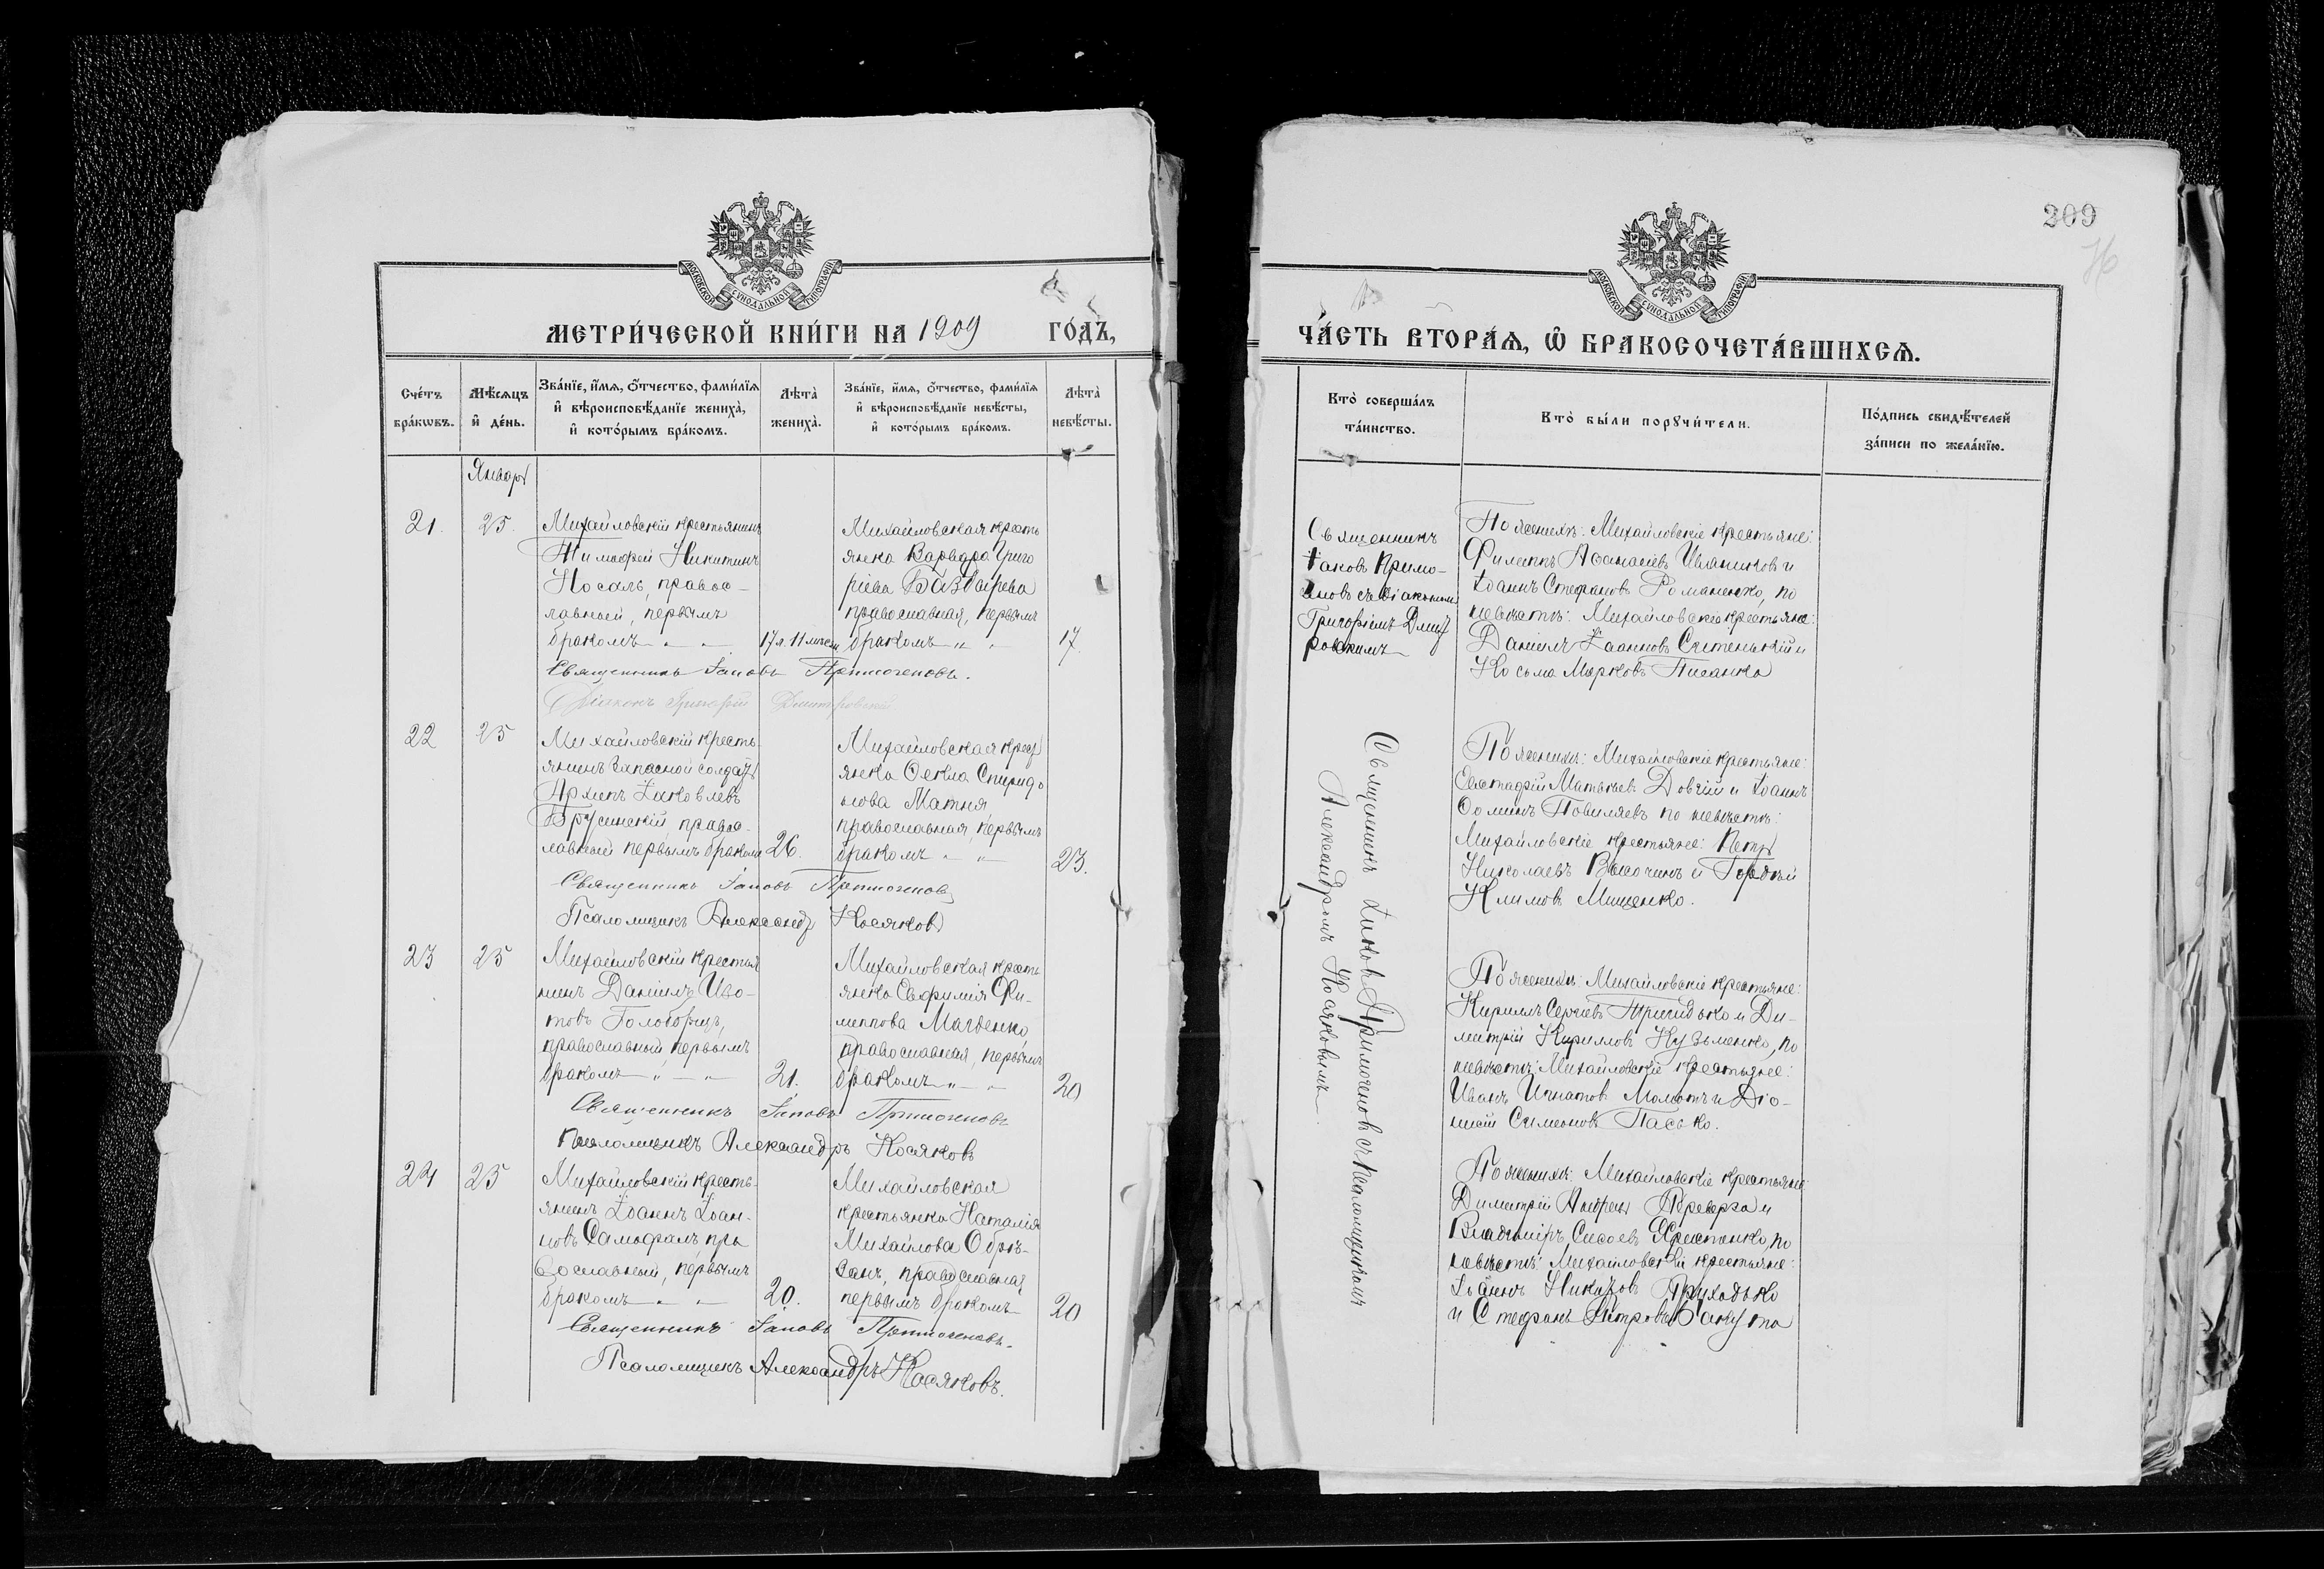 МОСКОВСКОЙ СѴНОДАЛЬНОЙ ТИПОГРАФІИ
МЕТРИ́ЧЕСКОЙ КНИ́ГИ НА 1909 ГО́ДЪ,
Сче́тъ бра́кωвъ.
Мѣ́сяцъ и҆ де́нь.
Зва́нїе, и҆́мѧ, ѻ҆́тчество, фами́лїѧ и҆ вѣроисповѣ́данїе жениха̀, и҆ кото́рымъ бра́комъ.
Лѣта̀ жениха̀.
Зва́нїе, и҆́мѧ, ѻ҆́тчество, фами́лїѧ и҆ вѣроисповѣ́данїе невѣ́сты, и҆ кото́рымъ бра́комъ.
Лѣта̀ невѣ́сты.
Январь
21.
25.
Михайловскій крестьянинъ
Тимофей Никитинъ
Носаль, правос-
лавный, первымъ
бракомъ
17 л. 11 мѣсяц
Михайловская кресть
янка Варвара Григо
ріева
православная, первымъ
бракомъ
17.
Священникъ Іаковъ Примогеновъ.
Діаконъ Григорій Дмитровскій
22
25
Михайловскій кресть-
янинъ запасной солдатъ
Архипъ Іаковлевъ
Брусинскій, правос-
лавный первымъ бракомъ
26.
Михайловская крест
янка Ѳекла Спиридо
нова Матня
православная, первымъ
бракомъ
23.
Священникъ Іаковъ Примогеновъ
Псаломщикъ Александръ Косяковъ
23
25
Михайловскій крестья
нинъ Даніилъ Изо-
товъ Голоборщъ,
православный, первымъ
бракомъ
21.
Михайловская кресть
янка Евфимія Фи-
липпова
православная, первымъ
бракомъ
20
Священникъ Іаковъ Примогеновъ
Псаломщикъ Александръ Косяковъ
24
25
Михайловскій кресть-
янинъ Іоаннъ Іоан-
новъ Самофалъ пра
вославный, первымъ
бракомъ
20.
Михайловская
крестьянка Наталія
Михайлова Обрѣ-
занъ, православная
первымъ бракомъ
20
Священникъ Іаковъ Примогеновъ.
Псаломщикъ Александръ Косяковъ.
209
МОСКОВСКОЙ СѴНОДАЛЬНОЙ ТИПОГРАФІИ
ЧА́СТЬ ВТОРА́Ѧ, Ѡ҆ БРАКОСОЧЕТА́ВШИХСѦ.
Кто̀ соверша́лъ та́инство.
Кто̀ бы́ли порꙋчи́тели.
По́дпись свидѣ́телей за́писи по жела́нїю.
Священникъ
Іаковъ Примо-
геновъ съ діакономъ
Григоріемъ Дмит
ровскимъ
По женихѣ: Михайловскіе крестьяне:
Филиппъ Аѳанасіевъ Иваниковъ и
Іоаннъ Стефановъ Романенко, по
невѣстѣ: Михайловскіе крестьяне:
Даніилъ Іоанновъ и
Косьма Марковъ Писанко
Священникъ Іаковъ Примогеновъ съ псаломщикомъ
Александромъ Косяковымъ
По женихѣ: Михайловскіе крестьяне:
Евстафій Матвѣевъ Довгій и Іоаннъ
Ѳоминъ по невѣстѣ:
Михайловскіе крестьяне: Петръ
Николаевъ Высочинъ и Гордѣй
Климовъ Мищенко.
По женихѣ: Михайловскіе крестьяне:
Кириллъ Сергіевъ и Ди-
митрій Кирилловъ Кузьменко, по
невѣстѣ: Михайловскіе крестьяне:
Иванъ Игнатовъ и Діо-
нисій Симеоновъ Пасько.
По женихѣ: Михайловскіе крестьяне:
Димитрій Андреевъ Переверза и
Владиміръ Сисоевъ Христенко, по
невѣстѣ: Михайловскіе крестьяне:
Іоаннъ Приходько
и Стефанъ Петровъ